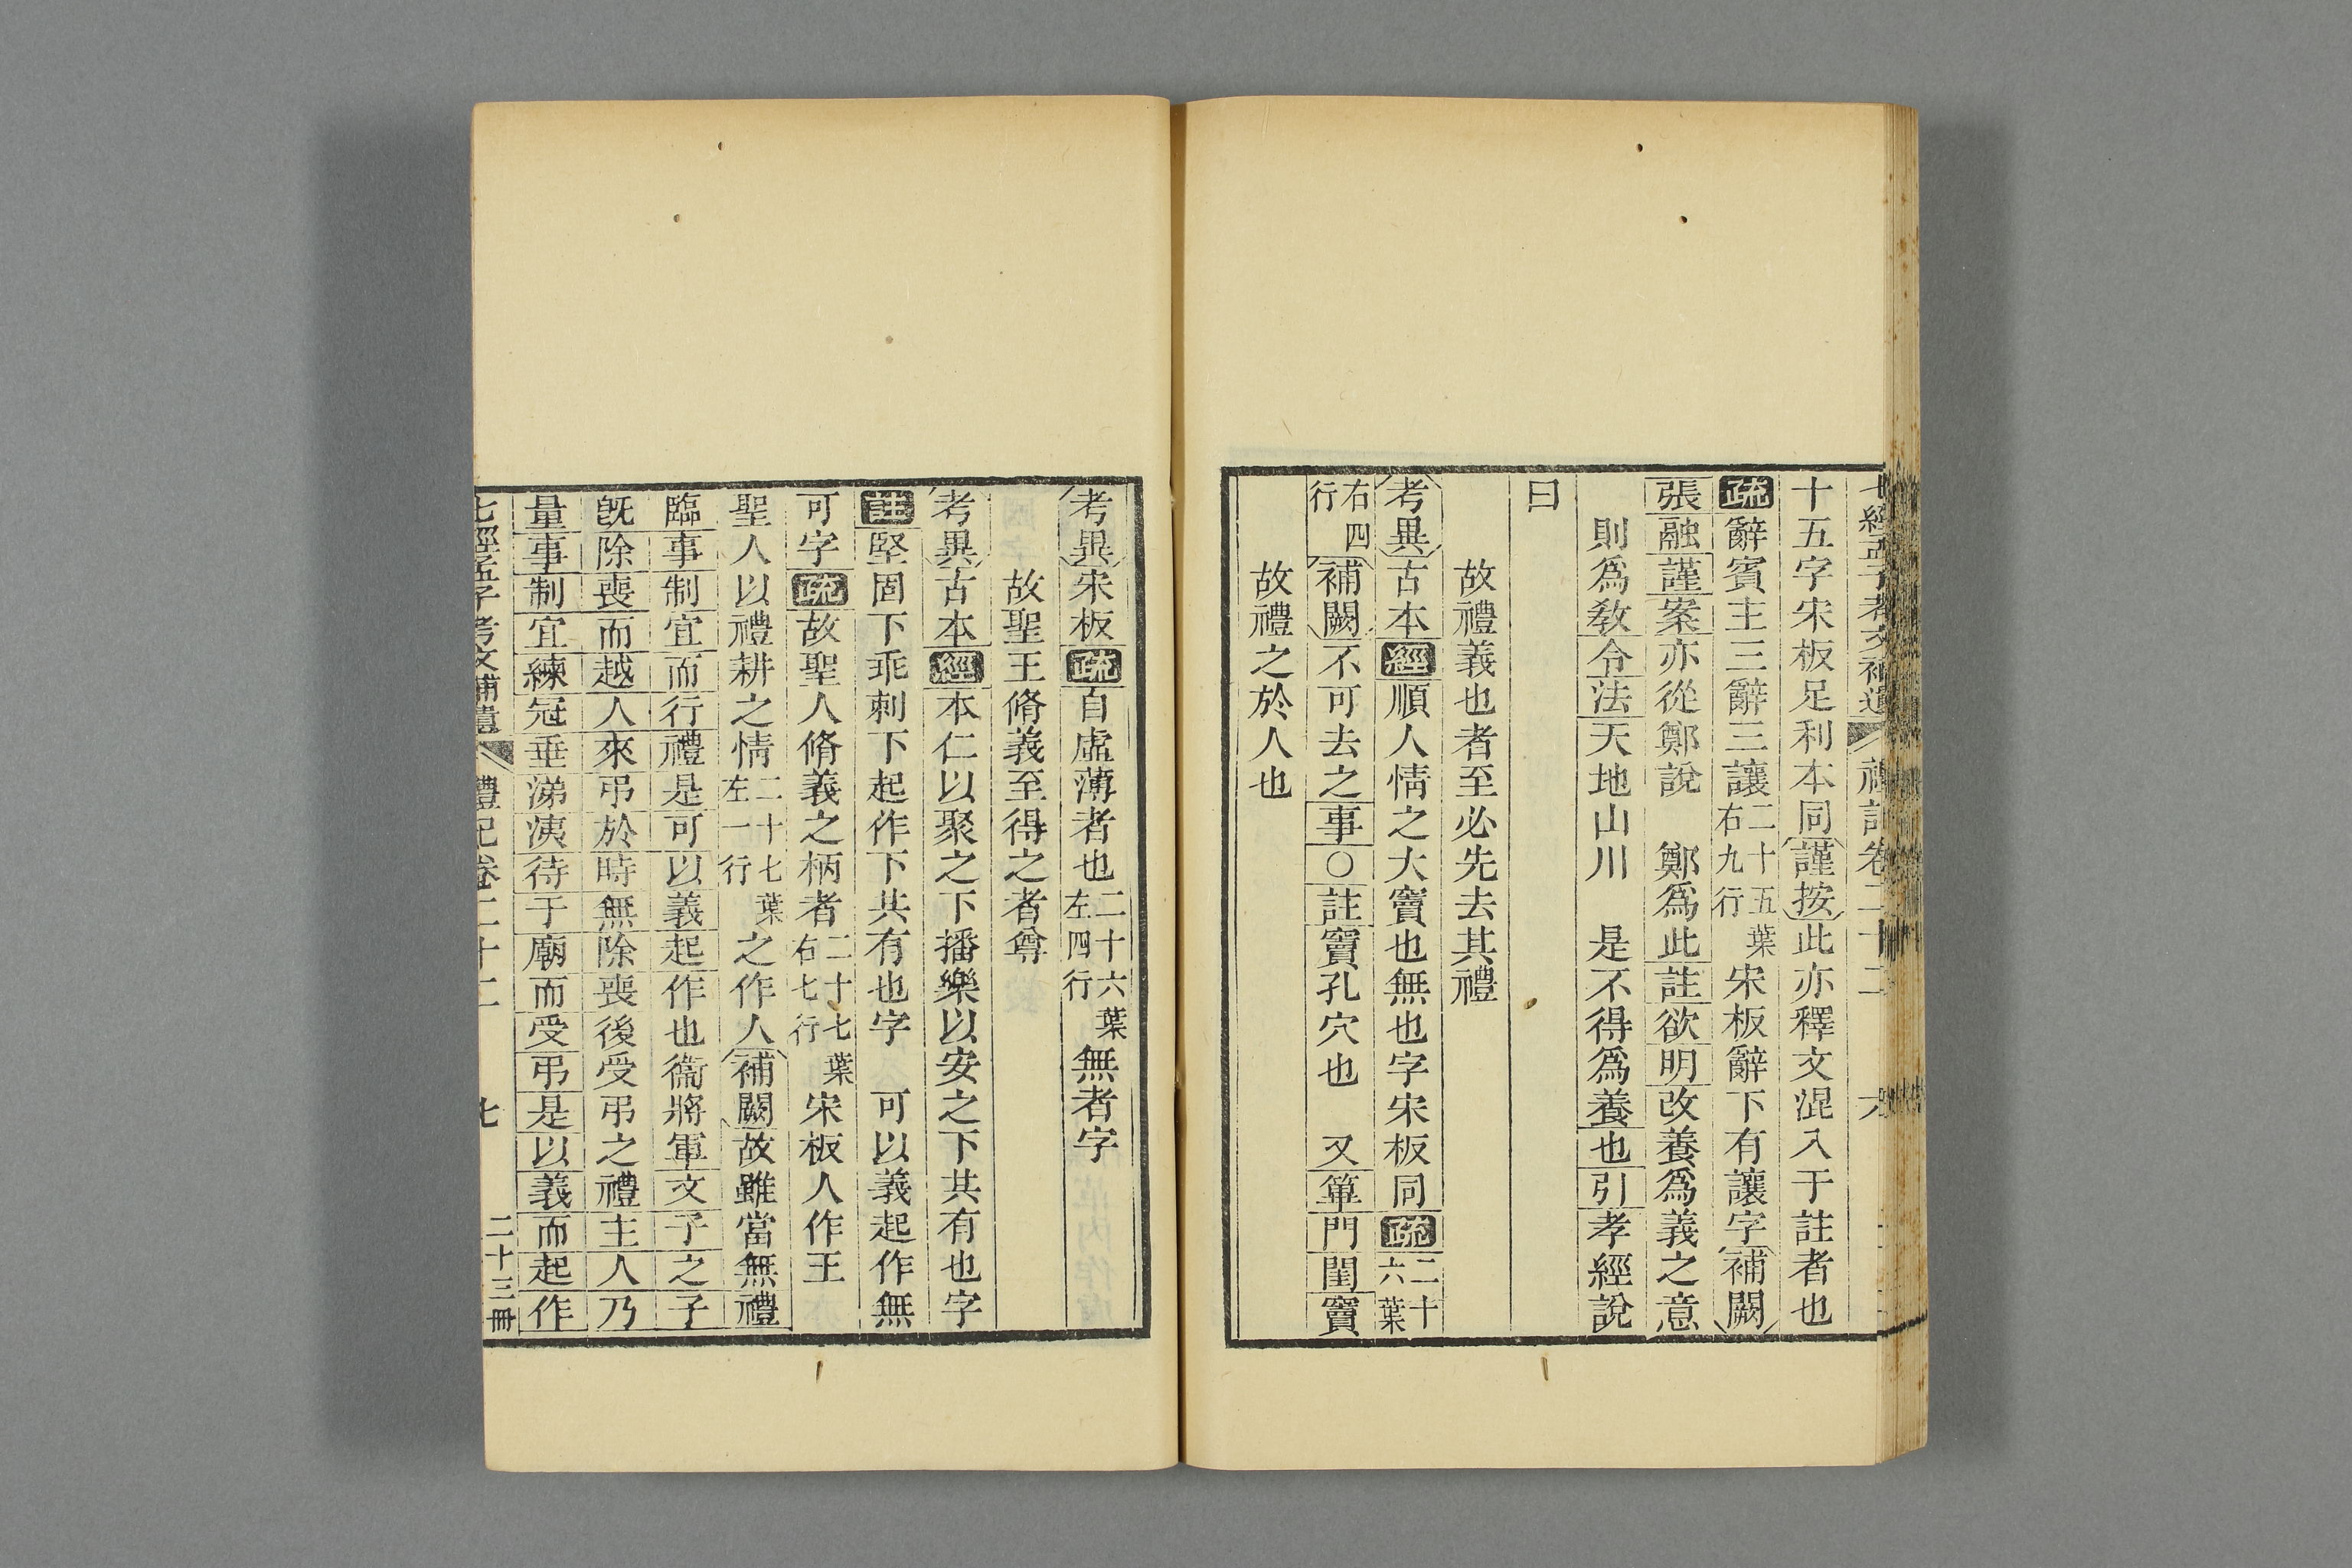 七經孟子考文補遺 禮記卷二十二 六
十五字宋板足利本同謹按此亦釋文混入于註者也
疏辭賓主三辭三讓二十五葉右九行宋板辭下有讓字補闕
張融謹案亦從鄭說 鄭爲此註欲明改養爲義之意
則爲教令法天地山川 是不得爲養也引孝經說
曰
故禮義也者至必先去其禮
考異古本經順人情之大竇也無也字宋板同疏二十六葉
右四行補闕不可去之事○註竇孔穴也 又篳門閨竇
故禮之於人也
考異宋板疏自虛薄者也二十六葉左四行無者字
故聖王脩義至得之者尊
考異古本經本仁以聚之下播樂以安之下共有也字
註堅固下乖剌下起作下共有也字 可以義起作無
可字疏故聖人脩義之柄者二十七葉右七行宋板人作王
聖人以禮耕之情二十七葉左一行之作人補闕故雖當無禮
臨事制宜而行禮是可以義起作也衞將軍文子之子
旣除喪而越人來弔於時無除喪後受弔之禮主人乃
量事制宜練冠垂涕洟待于廟而受弔是以義而起作
七經孟子考文補遺 禮記卷二十二 七 二十三冊